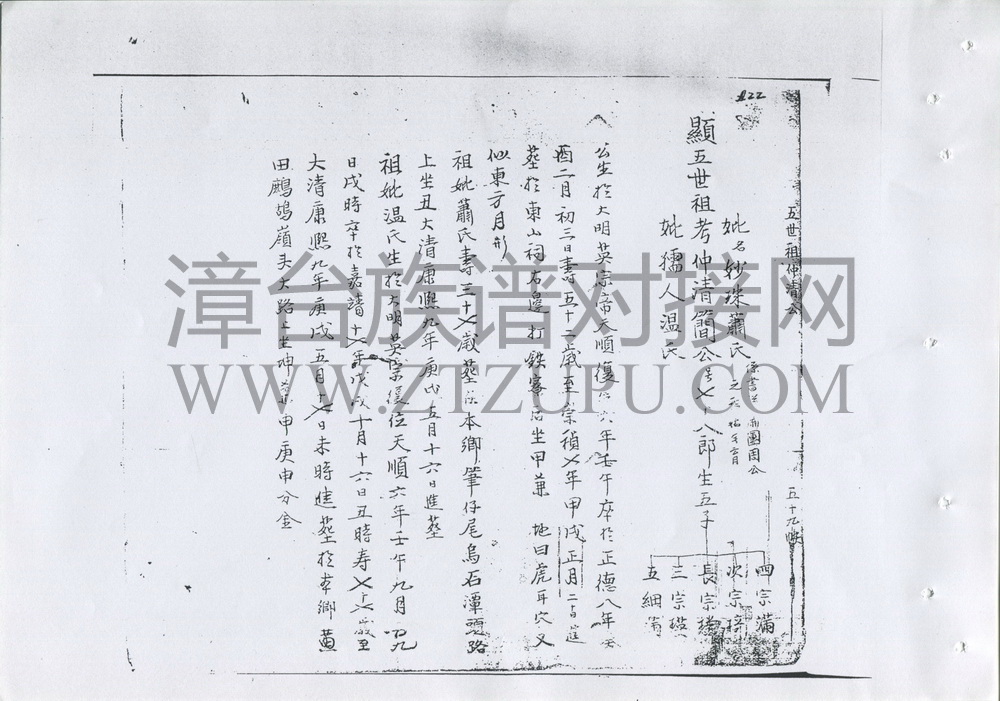 122
五世祖仲清公
五十九
妣名妙珠蕭氏
顯五世祖考仲清簡公号七十八郎生五子
妣孺人温氏
四宗滿
次宗
長宗
三宗瑛
五細滿
公生於大明英宗帝天順復位六年壬午卒於正德八年
酉二月初三日壽五十二歲至崇禎乂年甲戌正月二十日
葬於東山祠右邊打鉄寮后坐甲兼 地曰虎耳穴又
似東方月形
祖妣蕭氏壽三十乂歲葬在本鄉筆仔尾烏石潭頭路
上坐丑大清康熙九年庚戌五月十六日進葬
祖妣温氏生於大明英宗復位天順六年壬午九月
日戌時卒於嘉靖十乂年戊戌十月十六日丑時寿乂十乂歲至
大清康熙九年庚戌五月十乂日未時進葬於本鄉黃
田鷓鴣嶺头大路上坐坤兼申庚申分金
漳台族谱对接网
WWW.ZTZUPU.COM